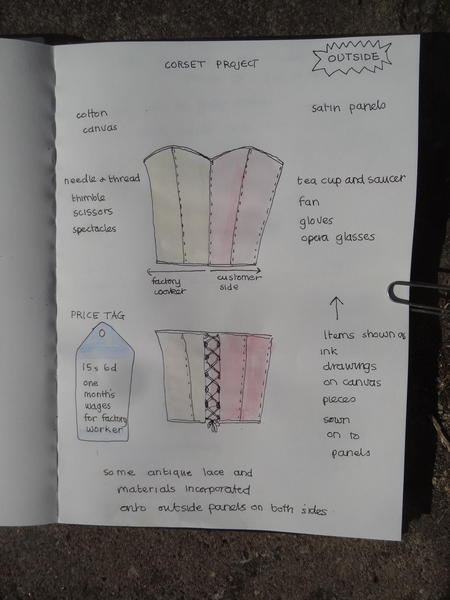 CORSET PROJECT
OUTSIDE
cotton
canvas
satin panels
needle & thread
thimble
scissors
spectacles
tea cup and saucer
fan
gloves
opera glasses
factory
worker
customer
side
PRICE TAG
15s 6d
one
month's
wages
for factory
worker
Items shown as
ink
drawings
on canvas
pieces
sewn
on to
panels
some antique lace and
materials incorporated
onto outside panels on both sides